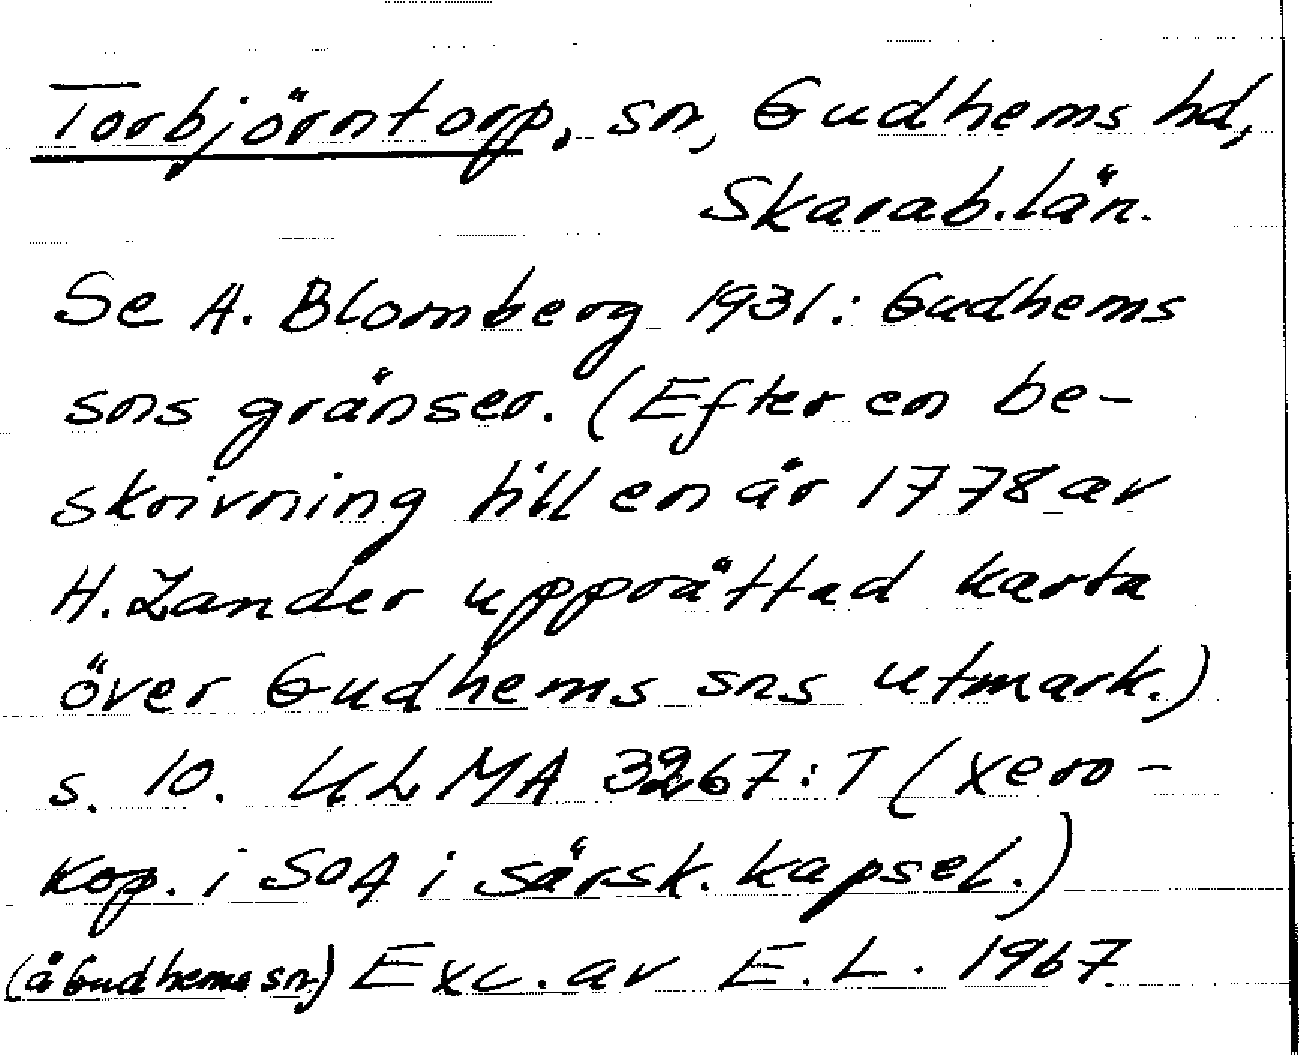 Torbjörntorp, sn, Gudhems hd,
Skarab.län.
Se A. Blomberg 1931: Gudhems
sns gränser. (Efter en be-
skrivning till en år 1778 av
H. Zander upprättad karta
över Gudhems sns utmark.)
s. 10. ULMA 3267:1 (xero-
kop. i SOA i särsk. kapsel.)
(å Gudhems sn) Exc. av E. L. 1967.